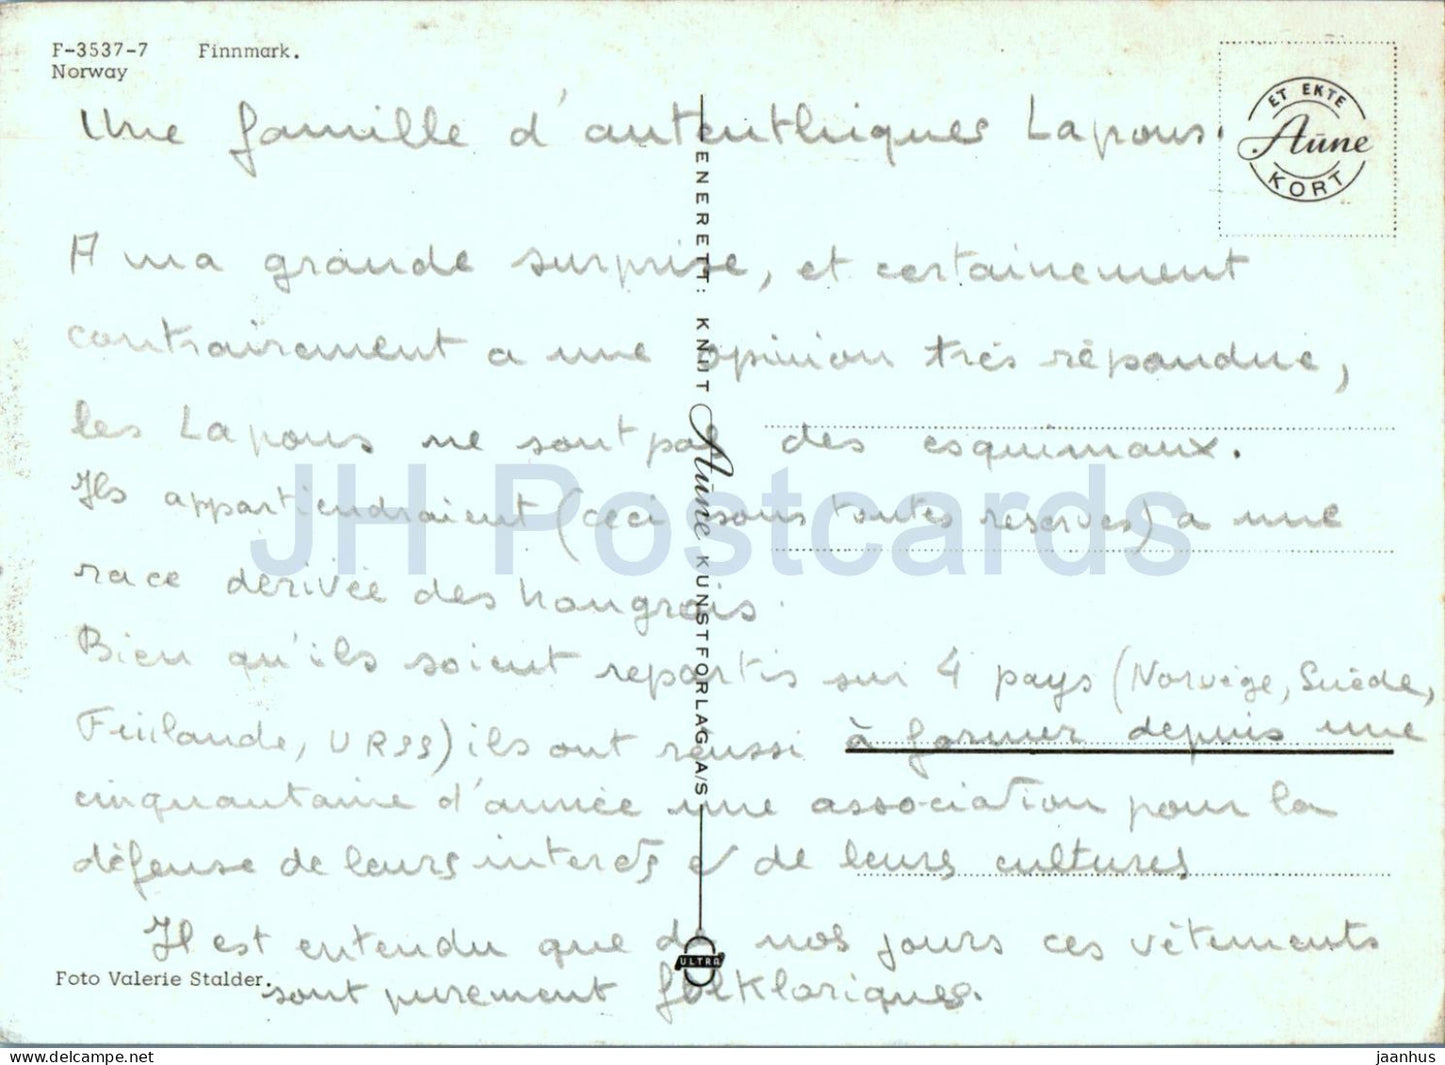 F-3537-7 Finnmark.
Norway
ET EKTE
Aūne
KORT
Une famille d'autenthiques Lapons.
A ma grande surprise, et certainement
contrairement a une opinion très répandue,
les Lapons ne sont pas des esquimaux.
Ils appartiendraient (ceci sous toutes reserves) a une
race derivée des hongrois.
Bien qu'ils soient repartis sur 4 pays (Norvège, Suède,
Finlande, URSS) ils ont reussi à former depuis une
cinquantaine d'année une association pour la
défense de leurs interets et de leurs cultures
Il est entendu que de nos jours ces vêtements
sont purement folkloriques.
Foto Valerie Stalder.
ENERETT: KNUT Aūne KUNSTFORLAG A/S
ULTRA
JH Postcards
www.delcampe.net
jaanhus